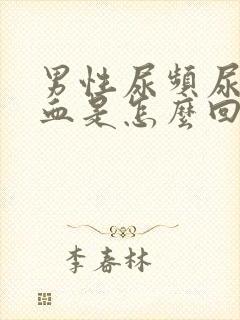 男性尿頻尿
血是怎麼回
李春林